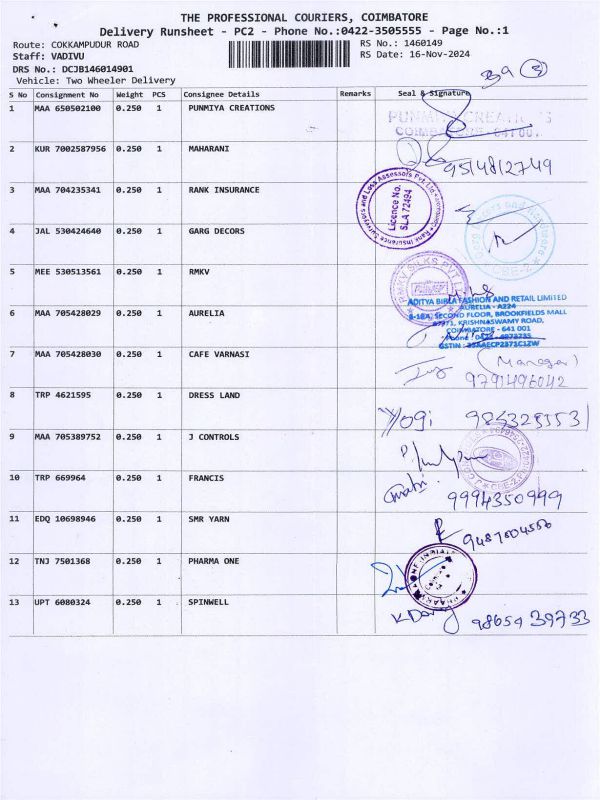 THE PROFESSIONAL COURIERS, COIMBATORE
Delivery Runsheet - PC2 - Phone No.:0422-3505555 - Page No.:1
Route: COKKAMPUDUR ROAD
RS No.: 1460149
Staff: VADIVU
RS Date: 16-Nov-2024
DRS No.: DCJB146014901
Vehicle: Two Wheeler Delivery
39 3
S No Consignment No Weight PCS Consignee Details Remarks Seal & Signature
1 MAA 650502100 0.250 1 PUNMIYA CREATIONS
PUNMIYA CREATIONS
COIMBATORE - 641 001.
2 KUR 7002587956 0.250 1 MAHARANI
9514812749
3 MAA 704235341 0.250 1 RANK INSURANCE
Rank Insurance Surveyors and Loss Assessors Pvt Ltd
Licence No.
SLA 72494
4 JAL 530424640 0.250 1 GARG DECORS
CBE-2
5 MEE 530513561 0.250 1 RMKV
RMKV SILKS PVT LTD
6 MAA 705428029 0.250 1 AURELIA
ADITYA BIRLA FASHION AND RETAIL LIMITED
AURELIA - A224
SECOND FLOOR, BROOKFIELDS MALL
KRISHNASWAMY ROAD,
COIMBATORE - 641 001
7 MAA 705428030 0.250 1 CAFE VARNASI
(Manager)
9791496042
8 TRP 4621595 0.250 1 DRESS LAND
Yogi 984329153
9 MAA 705389752 0.250 1 J CONTROLS
10 TRP 669964 0.250 1 FRANCIS
9994350999
11 EDQ 10698946 0.250 1 SMR YARN
9487604556
12 TNJ 7501368 0.250 1 PHARMA ONE
13 UPT 6080324 0.250 1 SPINWELL
9865439733